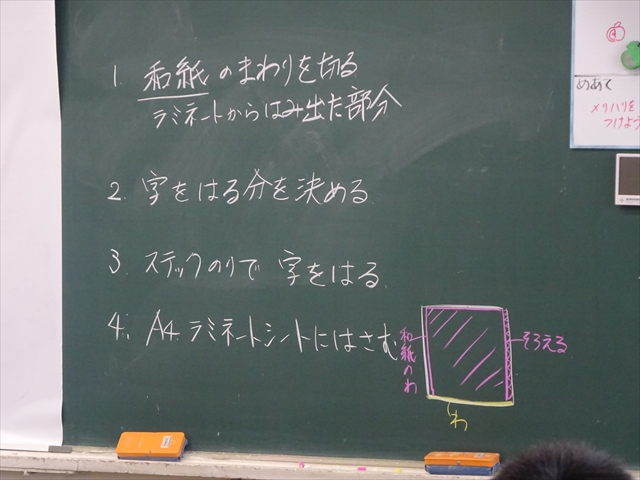 1. 和紙のまわりを切る
ラミネートからはみ出た部分
2. 字をはる分を決める
3. スティックのりで 字をはる
4. A4 ラミネートシートにはさむ
和紙のわ
そろえる
わ
めあて
メリハリを
つけよう